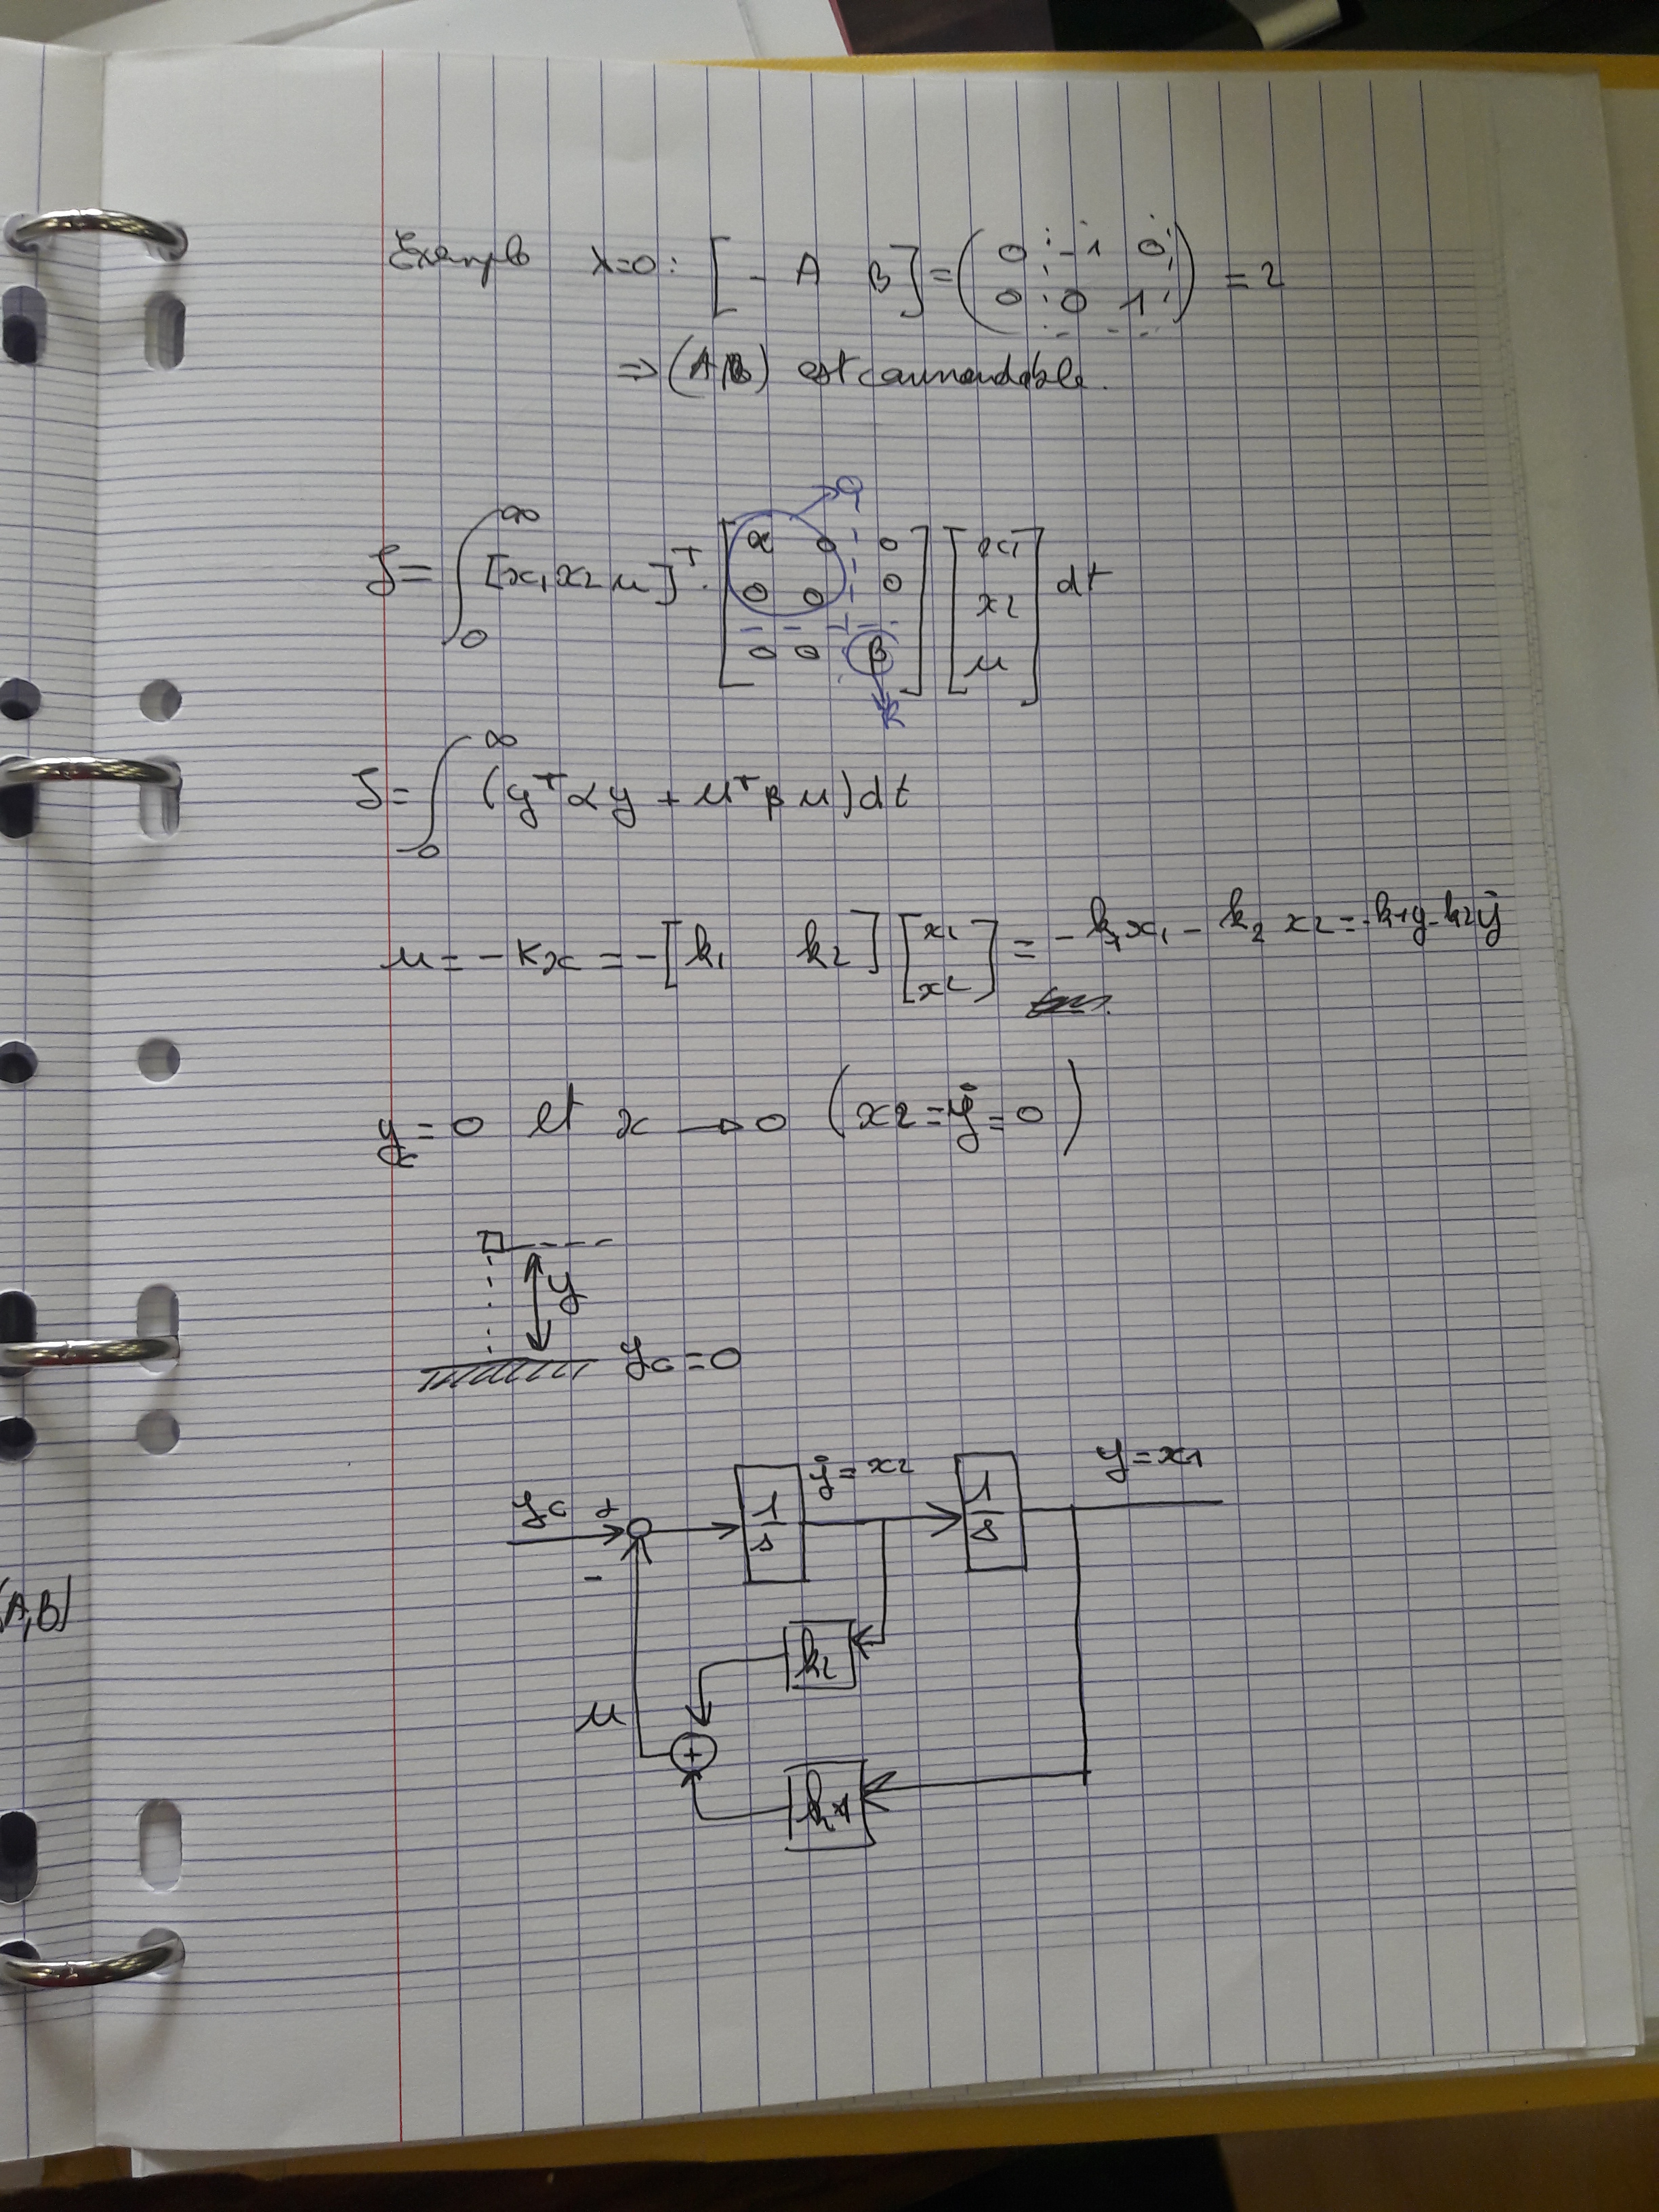 Exemple λ=0: [-A B] = (0 -1 0; 0 0 1) = 2
⇒ (A,B) est commandable.
→ Q
J = ∫₀^∞ [x1 x2 u]ᵀ. [α 0 0; 0 0 0; 0 0 β] [x1; x2; u] dt
R
J = ∫₀^∞ (yᵀ α y + uᵀ β u) dt
u = -Kx = -[k1 k2] [x1; x2] = -k1 x1 - k2 x2 = -k1y - k2ẏ
yc = 0 et x → 0 (x2 = ẏ = 0)
y
yc = 0
yc + - 1/s ẏ = x2 1/s y = x1
(A,B)
k2
u
+
k1